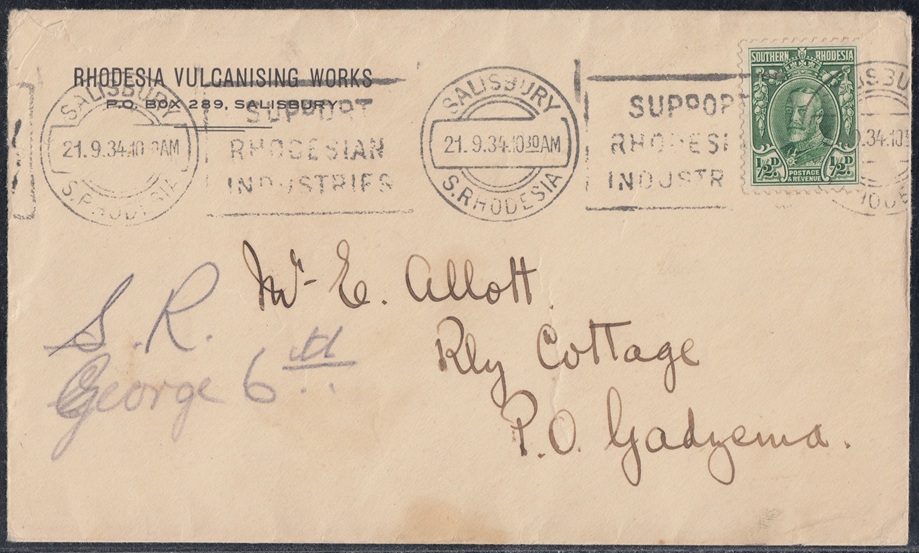 RHODESIA VULCANISING WORKS
P.O. BOX 289, SALISBURY
SALISBURY
21.9.34.10 AM
S.RHODESIA
SUPPORT
RHODESIAN
INDUSTRIES
SALISBURY
21.9.34.1030AM
S.RHODESIA
SUPPORT
RHODESI
INDUSTR
SOUTHERN RHODESIA
½D POSTAGE & REVENUE ½D
Mr E. Allott.
Rly Cottage
P.O. Gadzema.
S.R.
George 6th